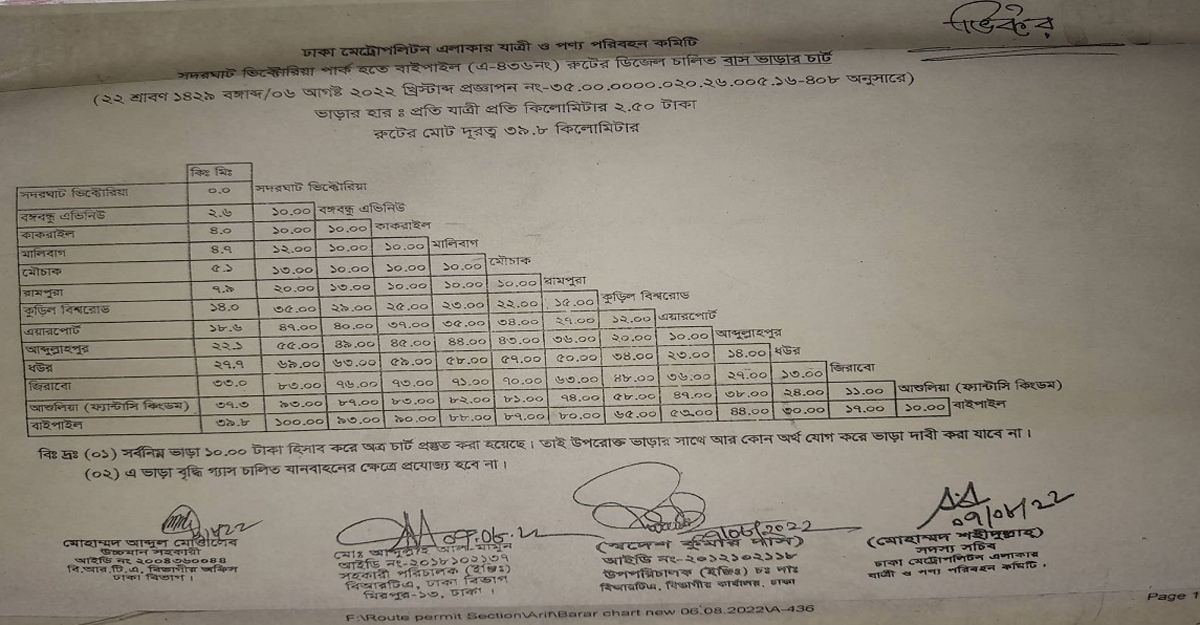 ভিক্টর
ঢাকা মেট্রোপলিটন এলাকার যাত্রী ও পণ্য পরিবহন কমিটি
সদরঘাট ভিক্টোরিয়া পার্ক হতে বাইপাইল (এ-৪৩৬নং) রুটের ডিজেল চালিত বাস ভাড়ার চার্ট
(২২ শ্রাবণ ১৪২৯ বঙ্গাব্দ/০৬ আগষ্ট ২০২২ খ্রিস্টাব্দ প্রজ্ঞাপন নং-৩৫.০০.০০০০.০২০.২৬.০০৫.১৬-৪০৮ অনুসারে)
ভাড়ার হার ঃ প্রতি যাত্রী প্রতি কিলোমিটার ২.৫০ টাকা
রুটের মোট দূরত্ব ৩৯.৮ কিলোমিটার
কিঃ মিঃ
সদরঘাট ভিক্টোরিয়া ০.০ সদরঘাট ভিক্টোরিয়া
বঙ্গবন্ধু এভিনিউ ২.৬ ১০.০০ বঙ্গবন্ধু এভিনিউ
কাকরাইল ৪.০ ১০.০০ ১০.০০ কাকরাইল
মালিবাগ ৪.৭ ১২.০০ ১০.০০ ১০.০০ মালিবাগ
মৌচাক ৫.১ ১৩.০০ ১০.০০ ১০.০০ ১০.০০ মৌচাক
রামপুরা ৭.৯ ২০.০০ ১৩.০০ ১০.০০ ১০.০০ ১০.০০ রামপুরা
কুড়িল বিশ্বরোড ১৪.০ ৩৫.০০ ২৯.০০ ২৫.০০ ২৩.০০ ২২.০০ ১৫.০০ কুড়িল বিশ্বরোড
এয়ারপোর্ট ১৮.৬ ৪৭.০০ ৪০.০০ ৩৭.০০ ৩৫.০০ ৩৪.০০ ২৭.০০ ১২.০০ এয়ারপোর্ট
আব্দুল্লাহপুর ২২.১ ৫৫.০০ ৪৯.০০ ৪৫.০০ ৪৪.০০ ৪৩.০০ ৩৬.০০ ২০.০০ ১০.০০ আব্দুল্লাহপুর
ধউর ২৭.৭ ৬৯.০০ ৬৩.০০ ৫৯.০০ ৫৮.০০ ৫৭.০০ ৫০.০০ ৩৪.০০ ২৩.০০ ১৪.০০ ধউর
জিরাবো ৩৩.০ ৮৩.০০ ৭৬.০০ ৭৩.০০ ৭১.০০ ৭০.০০ ৬৩.০০ ৪৮.০০ ৩৬.০০ ২৭.০০ ১৩.০০ জিরাবো
আশুলিয়া (ফ্যান্টাসি কিংডম) ৩৭.৩ ৯৩.০০ ৮৭.০০ ৮৩.০০ ৮২.০০ ৮১.০০ ৭৪.০০ ৫৮.০০ ৪৭.০০ ৩৮.০০ ২৪.০০ ১১.০০ আশুলিয়া (ফ্যান্টাসি কিংডম)
বাইপাইল ৩৯.৮ ১০০.০০ ৯৩.০০ ৯০.০০ ৮৮.০০ ৮৭.০০ ৮০.০০ ৬৫.০০ ৫৩.০০ ৪৪.০০ ৩০.০০ ১৭.০০ ১০.০০ বাইপাইল
বিঃ দ্রঃ (০১) সর্বনিম্ন ভাড়া ১০.০০ টাকা হিসাব করে অত্র চার্ট প্রস্তুত করা হয়েছে। তাই উপরোক্ত ভাড়ার সাথে আর কোন অর্থ যোগ করে ভাড়া দাবী করা যাবে না।
(০২) এ ভাড়া বৃদ্ধি গ্যাস চালিত যানবাহনের ক্ষেত্রে প্রযোজ্য হবে না।
মোহাম্মদ আব্দুল মোত্তালেব
উচ্চমান সহকারী
আইডি নং ২০০৪৩৬০০৪৪
বি.আর.টি.এ, বিভাগীয় অফিস
ঢাকা বিভাগ।
০৭.০৮.২২
মোঃ আব্দুল্লাহ আল-মামুন
আইডি নং-২০১৮১০২১৩৭
সহকারী পরিচালক (ইঞ্জিঃ)
বিআরটিএ, ঢাকা বিভাগ
মিরপুর-১৩, ঢাকা।
০৭/০৮/২০২২
(স্বদেশ কুমার দাস)
আইডি নং-২০১২১০২১১৮
উপপরিচালক (ইঞ্জিঃ) চঃ দাঃ
বিআরটিএ, বিভাগীয় কার্যালয়, ঢাকা
০৭/০৮/২২
(মোহাম্মদ শহীদুল্লাহ)
সদস্য সচিব
ঢাকা মেট্রোপলিটন এলাকার
যাত্রী ও পণ্য পরিবহন কমিটি।
Page 1
F:\Route permit Section\Arif\Barar chart new 06.08.2022\A-436